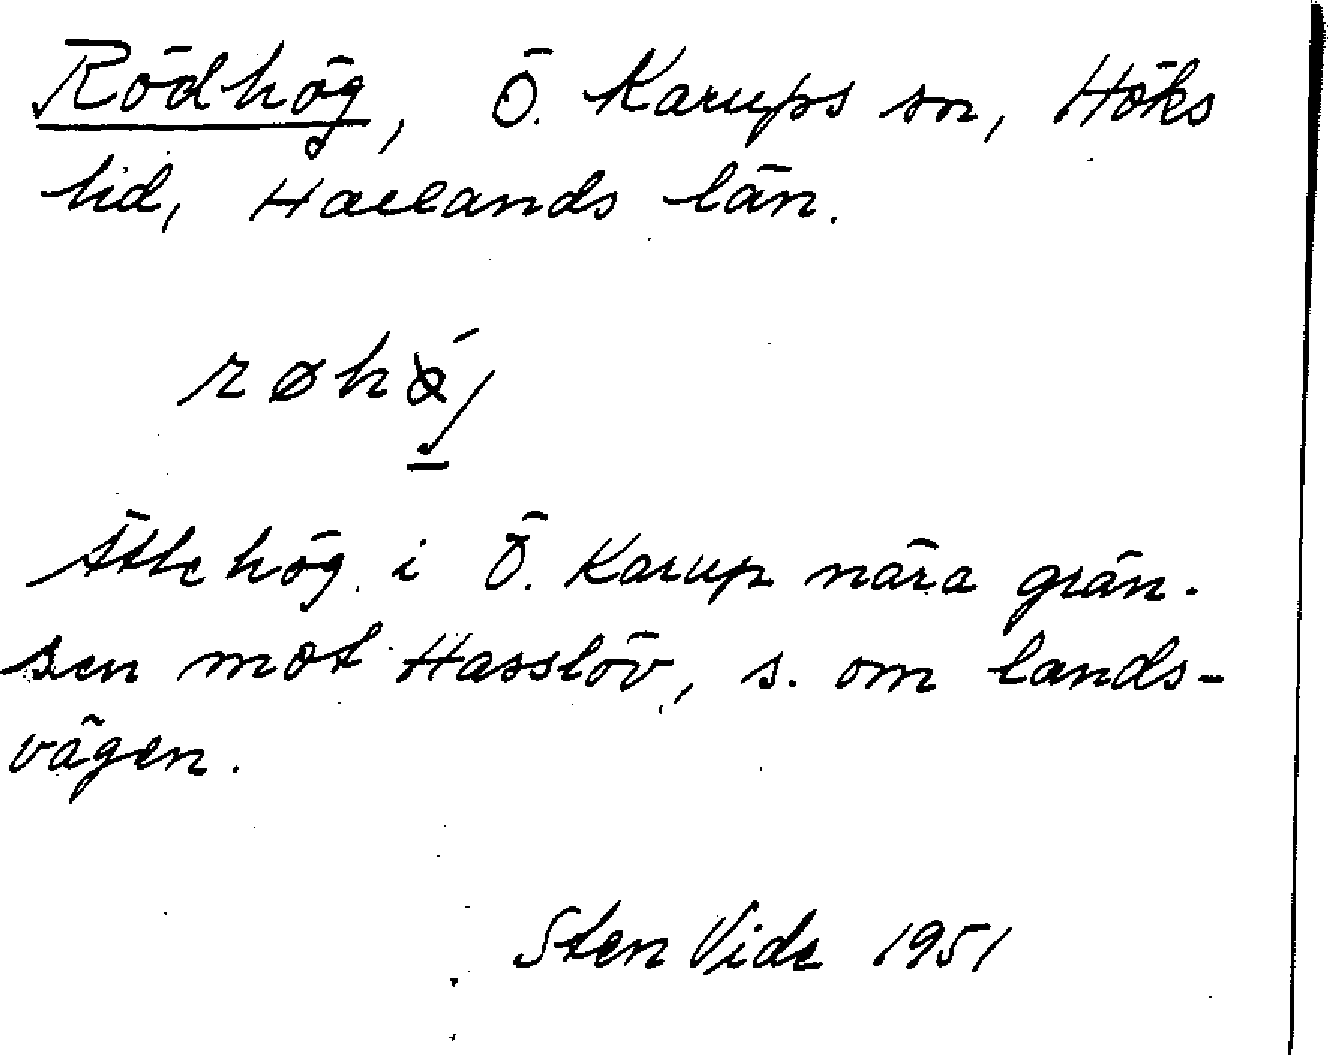 Rödhög, Ö. Karups sn, Höks
hd, Hallands län.
Ättehög i Ö. Karup nära grän-
sen mot Hasslöv, s. om lands-
vägen.
Sten Vide 1951